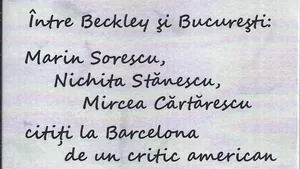 Între Beckley şi Bucureşti:
Marin Sorescu,
Nichita Stănescu,
Mircea Cărtărescu
citiţi la Barcelona
de un critic american